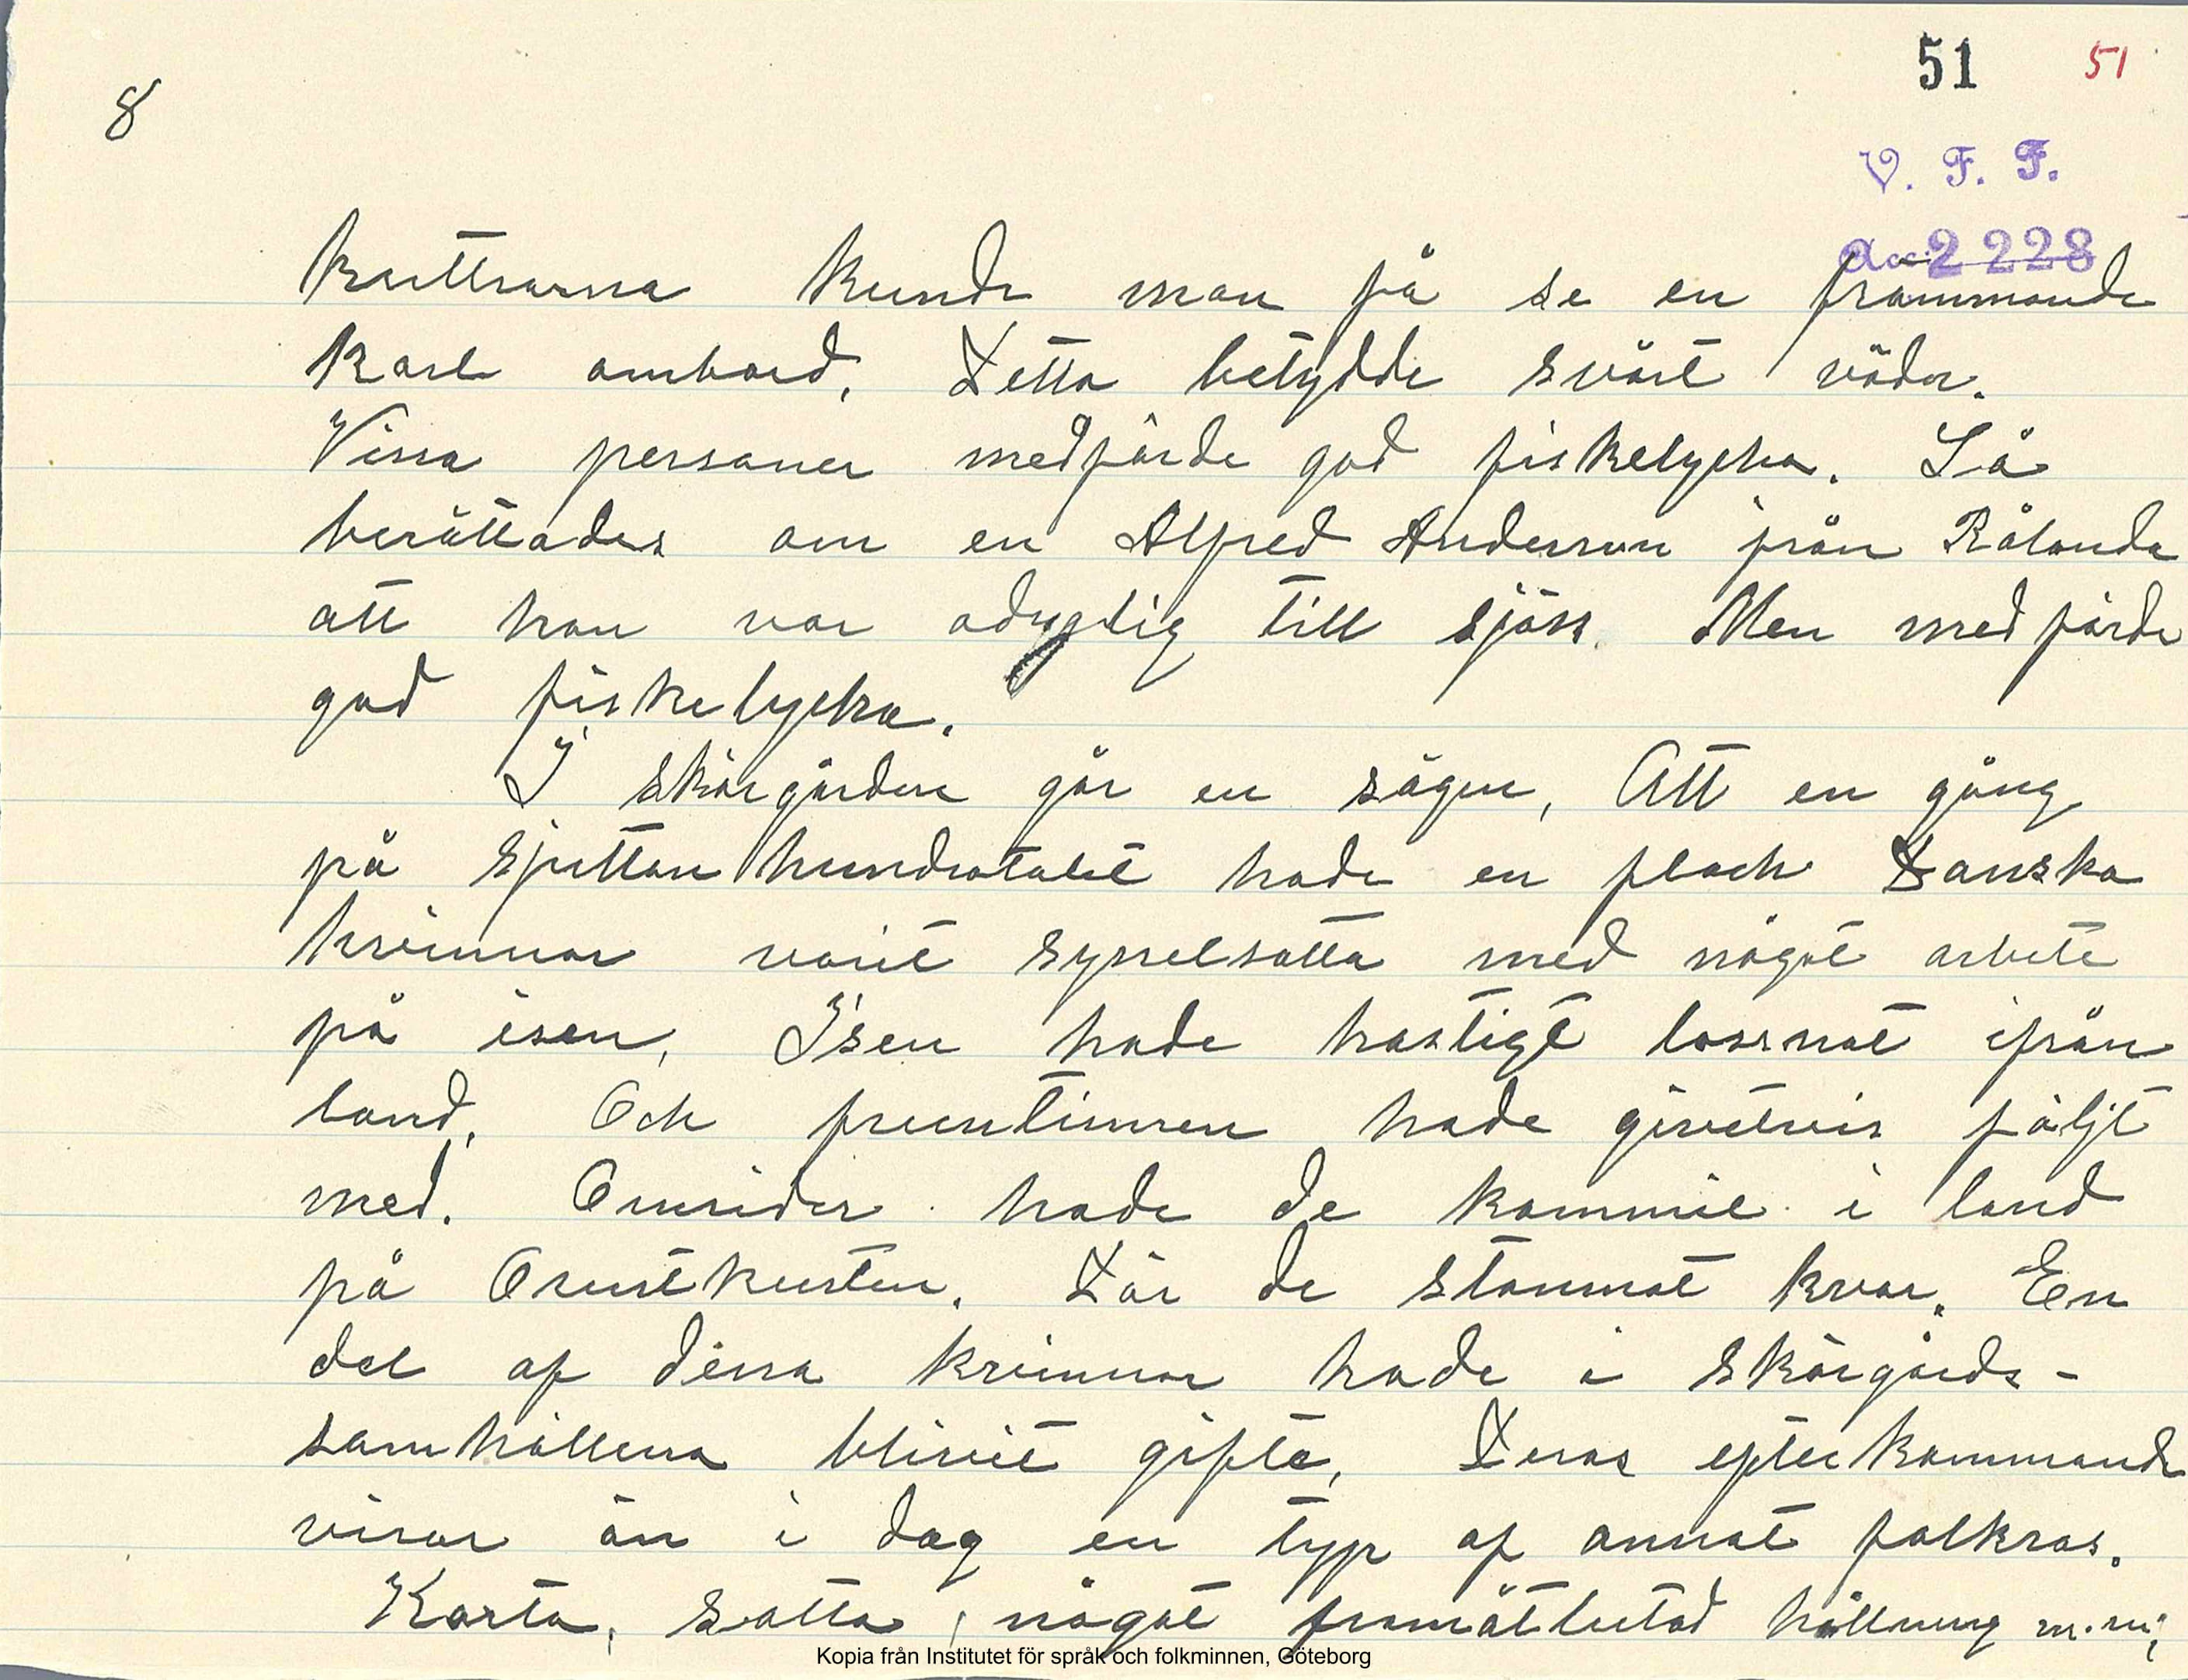 51 51
8
V. F. F.
Acc 2228
kuttrarna kunde man få se en främmande
karl ombord. Detta betydde svårt väder.
Vissa personer medförde god fiskelycka. Så
berättades om en Alfred Andersson från Rålanda
att han var oduglig till sjöss. Men medförde
god fiskelycka.
I skärgården går en sägen, Att en gång
på sjuttonhundratalet hade en flock Danska
kvinnor varit sysselsatta med något arbete
på isen. Isen hade hastigt lossnat ifrån
land. Och fruntimren hade givetvis följt
med. Omsider hade de kommit i land
på Orustkusten. Där de stannat kvar. En
del af dessa kvinnor hade i skärgårds-
samhällena blivit gifta. Deras efterkommande
visar än i dag en typ af annat folkras.
Korta, satta, något framåtlutad hållning m.m;
Kopia från Institutet för språk och folkminnen, Göteborg